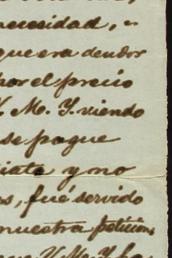 necesidad,
que era deudor
por el precio
V. M. Y. viendo
se pague
y no
fué servido
nuestra petición